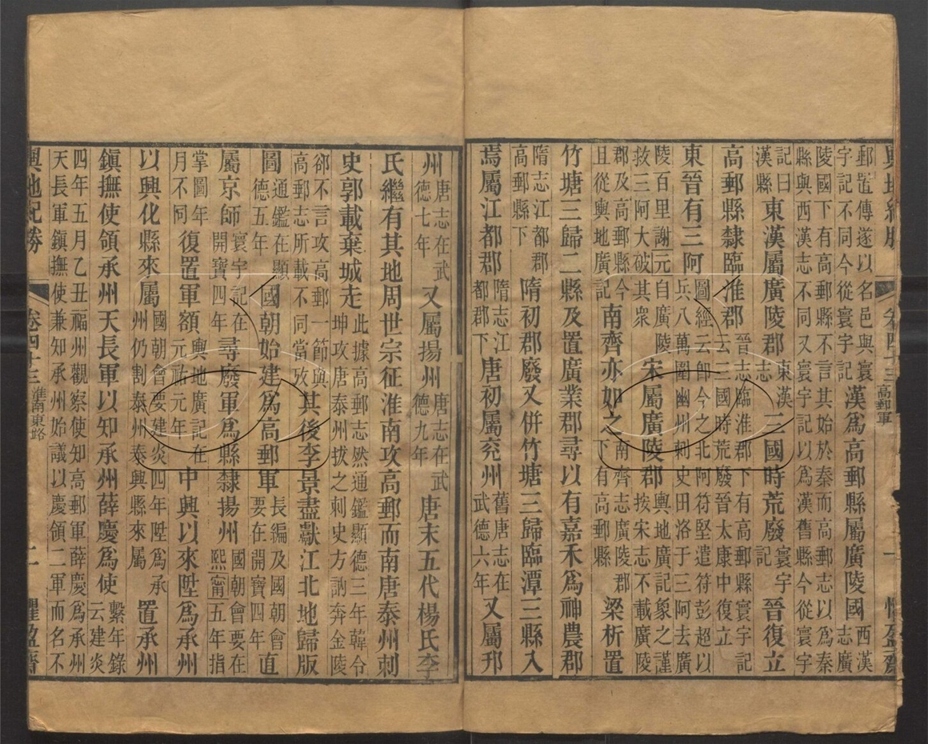 郵置傳遂以名邑與寰宇記不同今從寰宇記 漢為高郵縣屬廣陵國 西漢志廣
陵國下有高郵縣不言其始於秦而高郵志以為秦縣與西漢志不同又寰宇記以為漢舊縣今從寰宇
記曰漢縣 東漢屬廣陵郡 東漢志 三國時荒廢 寰宇記 晉復立
高郵縣隸臨淮郡 晉志臨淮郡下有高郵縣寰宇記云三國時荒廢晉太康中復立
東晉有三阿 圖經云即今之北阿符堅遣符彭超以兵八萬圍幽州刺史田洛于三阿去廣
陵百里謝元自廣陵救三阿大破其衆 宋屬廣陵郡 輿地廣記象之謹按宋志不載廣陵
郡及高郵縣今且從輿地廣記 南齊亦如之 南齊志廣陵郡下有高郵縣 梁析置
竹塘三歸二縣及置廣業郡尋以有嘉禾為神農郡
隋志江都郡高郵縣下 隋初郡廢又併竹塘三歸臨潭三縣入
焉屬江都郡 隋志江都郡下 唐初屬兖州 舊唐志在武德六年 又屬邗
州 唐志在武德七年 又屬揚州 唐志在武德九年 唐末五代楊氏李
氏繼有其地周世宗征淮南攻高郵而南唐泰州刺
史郭載棄城走 此據高郵志然通鑑顯德三年韓令坤攻唐泰州拔之刺史方訥奔金陵
郤不言攻高郵一節與高郵志所載不同當攷 其後李景盡獻江北地歸版
圖 通鑑在顯德五年 國朝始建為高郵軍 長編及國朝會要在開寶四年 直
屬京師 寰宇記在開寶四年 尋廢軍為縣隸揚州 國朝會要在熙寧五年指
掌圖年月不同 復置軍額 輿地廣記在元祐元年 中興以來陞為承州
以興化縣來屬 國朝會要建炎四年陞為承州仍割泰州泰興縣來屬 置承州
鎮撫使領承州天長軍以知承州薛慶為使 繫年錄云建炎
四年五月乙丑福州觀察使知高郵軍薛慶為承州天長軍鎮撫使兼知承州始議以慶領二軍而名不
輿地紀勝 卷四十三 淮南東路 二 懼盈齋
卷四十三 高郵軍 一 懼盈齋